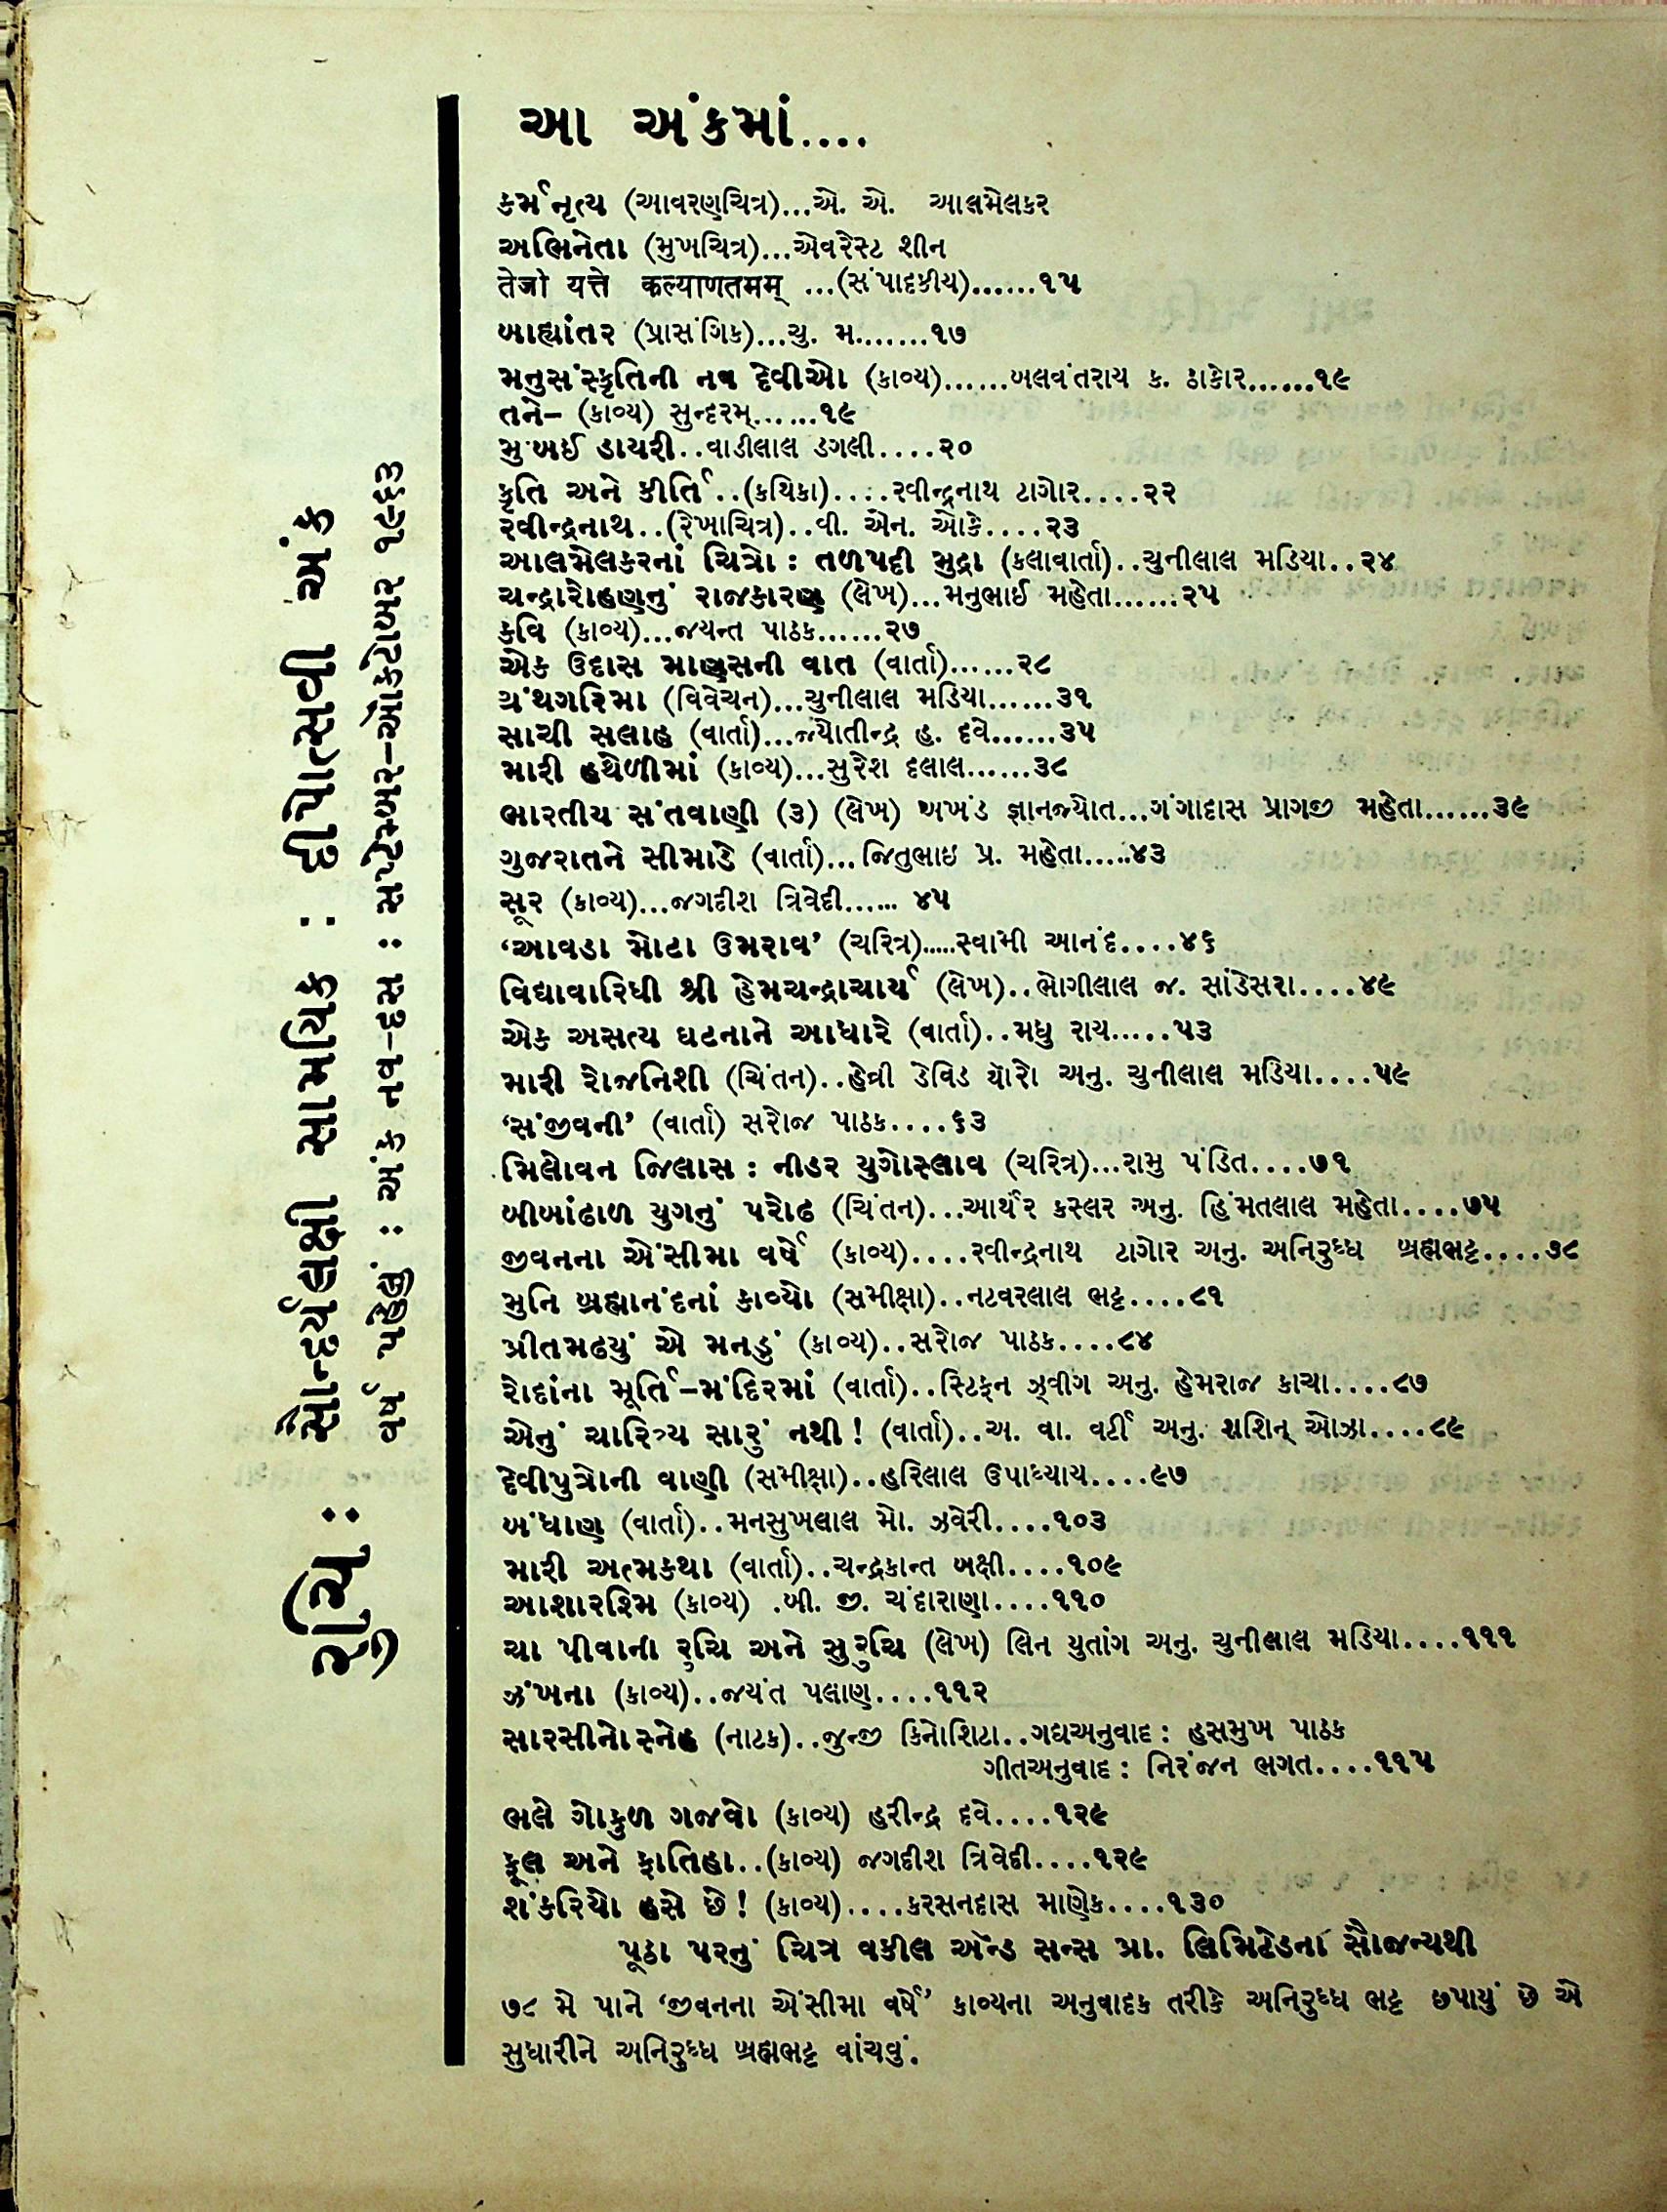 આ અંકમાં....
કર્મનૃત્ય (આવરણચિત્ર)...એ. એ. આલમેલકર
અભિનેતા (મુખચિત્ર)...એવરેસ્ટ શીન
तेजो यत्ते कल्याणतमम् ...(સંપાદકીય)......૧૫
બાહ્યાંતર (પ્રાસંગિક)...ચુ. મ.......૧૭
મનુસંસ્કૃતિની નવ દેવીઓ (કાવ્ય)......બલવંતરાય ક. ઠાકોર......૧૯
તને– (કાવ્ય) સુન્દરમ્......૧૯
મુંબઈ ડાયરી..વાડીલાલ ડગલી....૨૦
કૃતિ અને કીર્તિ..(કથિકા)....રવીન્દ્રનાથ ટાગોર....૨૨
રવીન્દ્રનાથ..(રેખાચિત્ર)..વી. એન. ઓકે....૨૩
આલમેલકરનાં ચિત્રો : તળપદી મુદ્રા (કલાવાર્તા)..ચુનીલાલ મડિયા..૨૪
ચન્દ્રારોહણનું રાજકારણ (લેખ)...મનુભાઈ મહેતા......૨૫
કવિ (કાવ્ય)...જયન્ત પાઠક......૨૭
એક ઉદાસ માણસની વાત (વાર્તા)......૨૮
ગ્રંથગરિમા (વિવેચન)...ચુનીલાલ મડિયા......૩૧
સાચી સલાહ (વાર્તા)...જ્યોતીન્દ્ર હ. દવે......૩૫
મારી હથેળીમાં (કાવ્ય)...સુરેશ દલાલ......૩૮
ભારતીય સંતવાણી (૩) (લેખ) અખંડ જ્ઞાનજ્યોત...ગંગાદાસ પ્રાગજી મહેતા......૩૯
ગુજરાતને સીમાડે (વાર્તા)...જિતુભાઇ પ્ર. મહેતા.....૪૩
સૂર (કાવ્ય)...જગદીશ ત્રિવેદી...... ૪૫
‘આવડા મોટા ઉમરાવ’ (ચરિત્ર).....સ્વામી આનંદ....૪૬
વિદ્યાવારિધી શ્રી હેમચન્દ્રાચાર્ય (લેખ)..ભોગીલાલ જ. સાંડેસરા....૪૯
એક અસત્ય ઘટનાને આધારે (વાર્તા)..મધુ રાય.....૫૩
મારી રોજનિશી (ચિંતન)..હેન્રી ડેવિડ થોરો અનુ. ચુનીલાલ મડિયા....૫૯
‘સંજીવની’ (વાર્તા) સરોજ પાઠક....૬૩
મિલોવન જિલાસ : નીડર યુગોસ્લાવ (ચરિત્ર)...રામુ પંડિત....૭૧
બીબાંઢાળ યુગનું પરોઢ (ચિંતન)...આર્થર કસ્લર અનુ. હિંમતલાલ મહેતા....૭૫
જીવનના એંસીમા વર્ષે (કાવ્ય)....રવીન્દ્રનાથ ટાગોર અનુ. અનિરુધ્ધ બ્રહ્મભટ્ટ....૭૮
મુનિ બ્રહ્માનંદનાં કાવ્યો (સમીક્ષા)..નટવરલાલ ભટ્ટ....૮૧
પ્રીતમઢયું એ મનડું (કાવ્ય)..સરોજ પાઠક....૮૪
રોદાંના મૂર્તિ–મંદિરમાં (વાર્તા)..સ્ટિફન ઝ્વીગ અનુ. હેમરાજ કાચા....૮૭
એનું ચારિત્ર્ય સારું નથી! (વાર્તા)..અ. વા. વર્ટી અનુ. શશિન્ ઓઝા....૮૯
દેવીપુત્રોની વાણી (સમીક્ષા)..હરિલાલ ઉપાધ્યાય....૯૭
બંધાણ (વાર્તા)..મનસુખલાલ મો. ઝવેરી....૧૦૩
મારી અત્મકથા (વાર્તા)..ચન્દ્રકાન્ત બક્ષી....૧૦૯
આશારશ્મિ (કાવ્ય) .બી. જી. ચંદારાણા....૧૧૦
ચા પીવાની રુચિ અને સુરુચિ (લેખ) લિન યુતાંગ અનુ. ચુનીલાલ મડિયા....૧૧૧
ઝંખના (કાવ્ય)..જયંત પલાણ....૧૧૨
સારસીનો સ્નેહ (નાટક)..જુન્જી કિનોશિટા..ગદ્યઅનુવાદ : હસમુખ પાઠક
ગીતઅનુવાદ : નિરંજન ભગત....૧૧૫
ભલે ગોકુળ ગજવો (કાવ્ય) હરીન્દ્ર દવે....૧૨૯
ફૂલ અને ફાતિહા..(કાવ્ય) જગદીશ ત્રિવેદી....૧૨૯
શંકરિયો હસે છે! (કાવ્ય)....કરસનદાસ માણેક....૧૩૦
પૂઠા પરનું ચિત્ર વકીલ એન્ડ સન્સ પ્રા. લિમિટેડના સૌજન્યથી
૭૮ મે પાને ‘જીવનના એંસીમા વર્ષે’ કાવ્યના અનુવાદક તરીકે અનિરુધ્ધ ભટ્ટ છપાયું છે એ
સુધારીને અનિરુધ્ધ બ્રહ્મભટ્ટ વાંચવું.
રુચિ : સૌન્દર્યલક્ષી સામયિક : દીપોત્સવી અંક
વર્ષ પહેલું : અંક નવ–દસ : સપ્ટેમ્બર–ઓક્ટોબર ૧૯૬૩